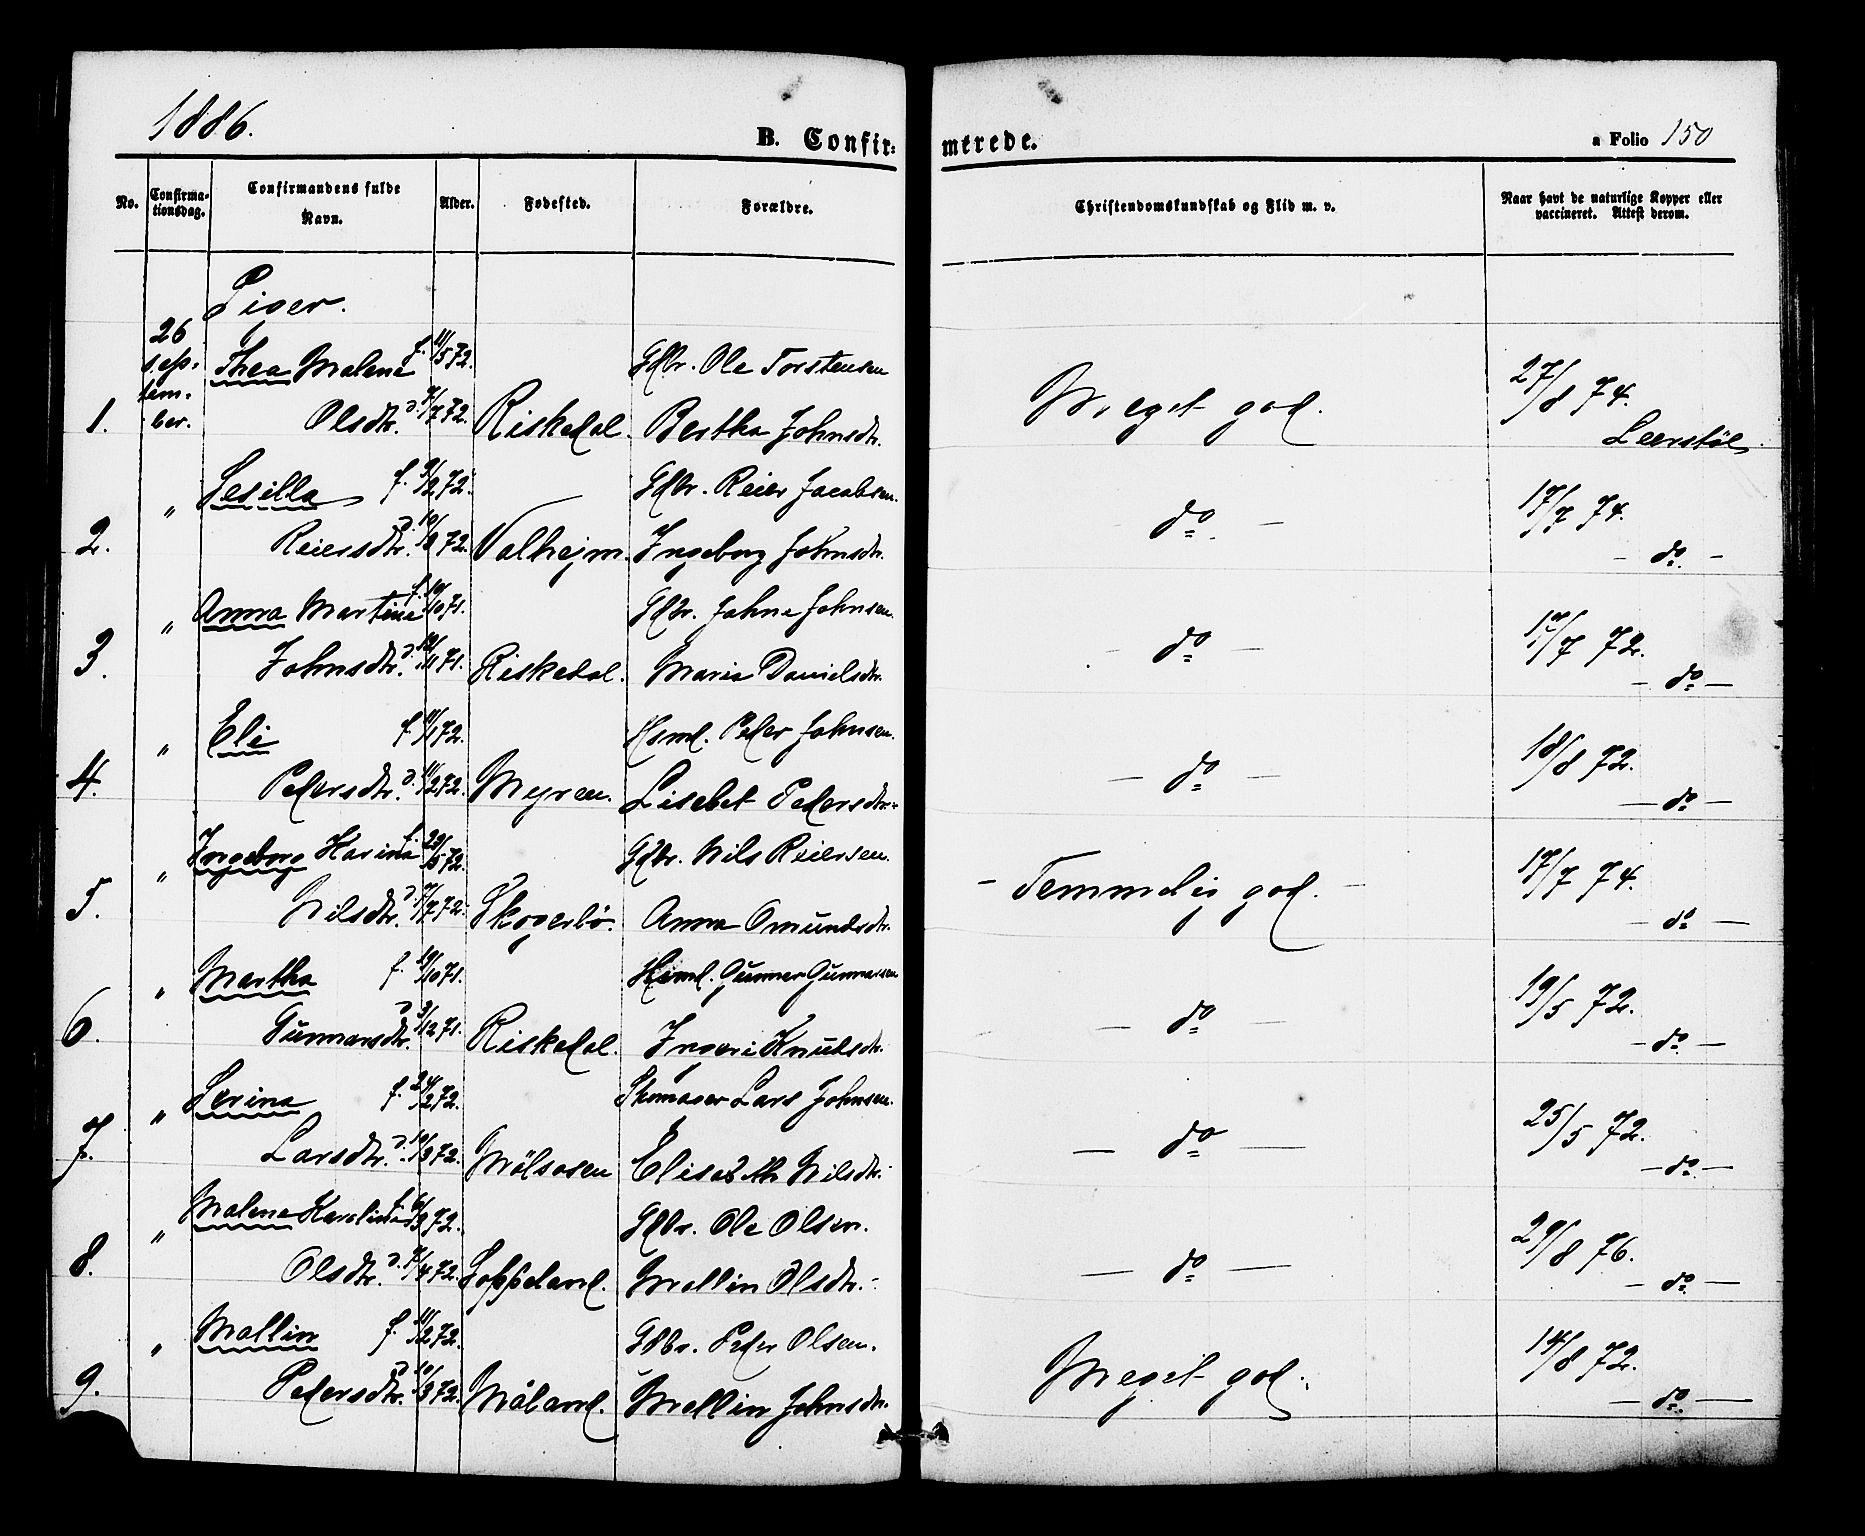 1886.
B. Confir-
merede.
a Folio 150
No.
Confirma-
tionsdag.
Confirmandens fulde
Navn.
Alder.
Fødested.
Forældre.
Christendomskundskab og Flid m. v.
Naar havt de naturlige Kopper eller
vaccineret. Attest derom.
Piger.
26
sep-
tem-
ber.
1. Thea Malene f. 11/5 72. Gdbr. Ole Torstensen
Olsdtr. d. 7/7 72. Riskedal. Bertha Johnsdtr. Meget god. 27/8 74.
Leerstøl
2. " Sesilla f. 9/2 72. Gdbr. Reier Jacobsen.
Reiersdtr. d. 10/3 72. Valhejm. Ingeborg Johnsdtr. do — 17/7 74.
— do —
3. " Anna Martine f. 10/10 71. Gdbr. Johne Johnsen.
Johnsdtr. d. 12/11 71. Riskedal. Maria Danielsdtr. do — 17/7 72.
— do —
4. " Eli f. 11/1 72. Hsmd. Peder Johnsen.
Pedersdtr. d. 11/2 72. Myren. Lisebet Pedersdtr. — do — 18/8 72.
— do —
5. " Ingeborg Karina f. 22/5 72. Gdbr. Nils Reiersen.
Nilsdtr. d. 7/7 72. Skogerbø. Anna Omundsdtr. — Temmelig god. — 17/7 74.
— do —
6. " Martha f. 19/10 71. Hsmd. Gunnar Gunnarsen
Gunnarsdtr. d. 3/12 71. Riskedal. Ingeri Knudsdtr. — do — 19/5 72.
— do —
7. " Serina f. 24/2 72. Lars Johnsen.
Larsdtr. d. 10/3 72. Mölsosen Elisabeth Nilsdtr. — do — 25/5 72.
— do —
8. " Malene Karoline f. 6/3 72. Gdbr. Ole Olsen.
Olsdtr. d. 7/4 72. Soppeland. Mallin Olsdtr. — do — 29/8 76.
— do —
9. " Mallin f. 11/2 72. Gdbr. Peder Olsen.
Pedersdtr. d. 10/3 72. Måland. Mallin Johnsdtr. Meget god. 14/8 72.
— do —